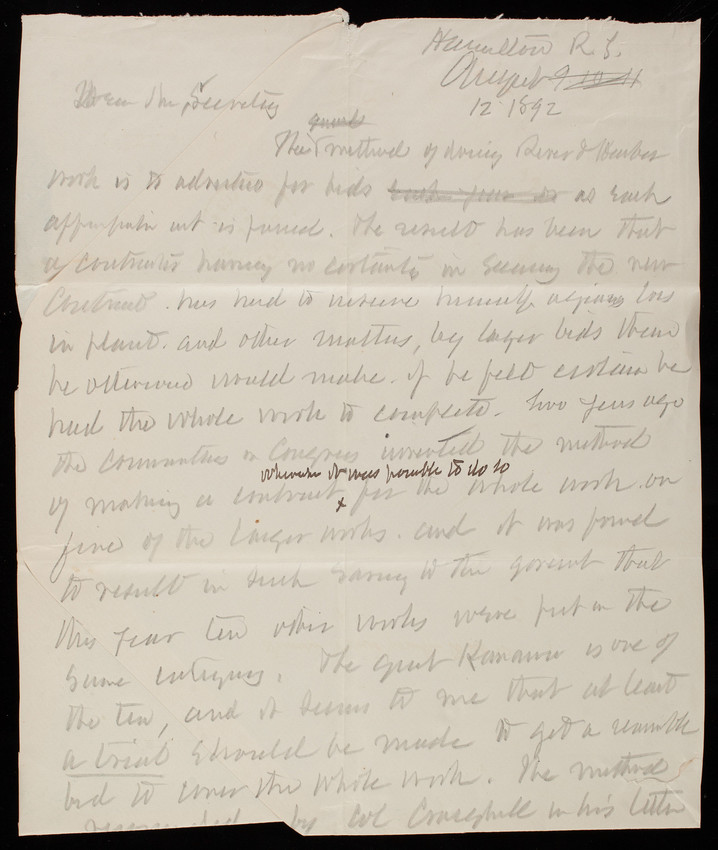 Hamilton R.I.
August 9 10 11
12 1892
Dear Mr. Secretary
usual
The method of doing River & Harbor
work is to advertise for bids each year as each
appropriation act is passed. The result has been that
a contractor having no certainty in securing the new
Contract has had to reserve himself against loss
in plant and other matters, by larger bids than
he otherwise would make if he felt certain he
had the whole work to complete. Two years ago
the committee in Congress invented the method
wherever it was possible to do so
of making a contract x for the whole work on
five of the larger works and it was found
to result in such saving to the government that
this year ten other works were put in the
same category. The great Kanawha is one of
the ten, and it seems to me that at least
a trial should be made to get a reasonable
bid to cover the whole work. The method
recommended by Col Craighill in his letter